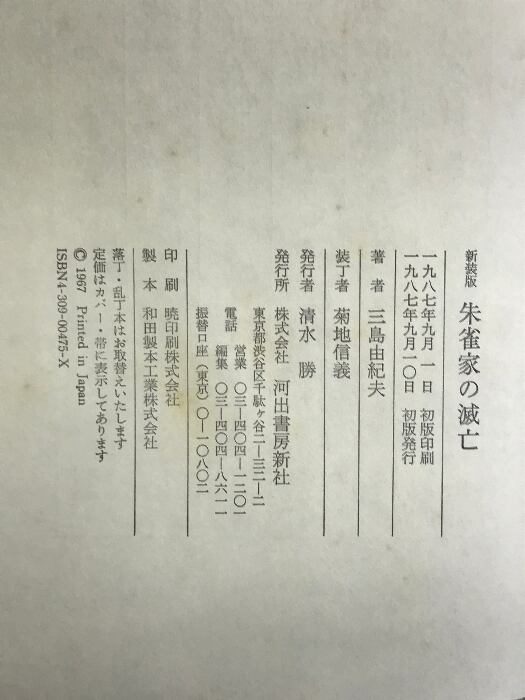 新装版 朱雀家の滅亡
一九八七年九月 一日 初版印刷
一九八七年九月一〇日 初版発行
著 者 三島由紀夫
装丁者 菊地信義
発行者 清水 勝
発行所 株式会社 河出書房新社
東京都渋谷区千駄ヶ谷二―三二―二
電話 営業 〇三―四〇四―一二〇一
編集 〇三―四〇四―八六一一
振替口座(東京)〇―一〇八〇二
印 刷 暁印刷株式会社
製 本 和田製本工業株式会社
落丁・乱丁本はお取替えいたします
定価はカバー・帯に表示してあります
© 1967 Printed in Japan
ISBN4-309-00475-X